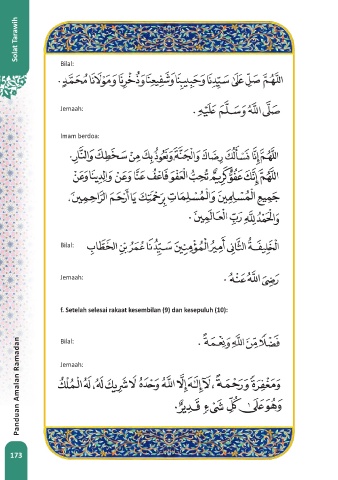 Solat Tarawih
Bilal:
اَللّٰهُمَّ صَلِّ عَلَىٰ سَيِّدِنَا وَحَبِيْبِنَا وَشَفِيْعِنَا وَذُخْرِنَا وَمَوْلَانَا مُحَمَّدٍ .
Jemaah:
صَلَّى اللّٰهُ وَسَلَّمَ عَلَيْهِ .
Imam berdoa:
اَللّٰهُمَّ إِنَّا نَسْأَلُكَ رِضَاكَ وَالْجَنَّةَ وَنَعُوْذُ بِكَ مِنْ سَخَطِكَ وَالنَّارِ.
اَللّٰهُمَّ إِنَّكَ عَفُوٌّ كَرِيْمٌ تُحِبُّ الْعَفْوَ فَاعْفُ عَنَّا وَعَنْ وَالِدِيْنَا وَعَنْ
جَمِيْعِ الْمُسْلِمِيْنَ وَالْمُسْلِمَاتِ بِرَحْمَتِكَ يَا أَرْحَمَ الرَّاحِمِيْنَ.
وَالْحَمْدُ لِلّٰهِ رَبِّ الْعَالَمِيْنَ .
Bilal: اَلْخَلِيْفَةُ الثَّانِى أَمِيْرُ الْمُؤْمِنِيْنَ سَيِّدُنَا عُمَرُ بْنُ الْخَطَّابِ
Jemaah: رَضِيَ اللّٰهُ عَنْهُ .
f. Setelah selesai rakaat kesembilan (9) dan kesepuluh (10):
Bilal: فَضْلًا مِّنَ اللّٰهِ وَنِعْمَةً .
Jemaah:
وَمَغْفِرَةً وَرَحْمَةً ، لَآ إِلٰهَ إِلَّا اللّٰهُ وَحْدَهُ لَا شَرِيْكَ لَهُ، لَهُ الْمُلْكُ
وَهُوَ عَلَىٰ كُلِّ شَيْءٍ قَدِيْرٌ.
Panduan Amalan Ramadan
173